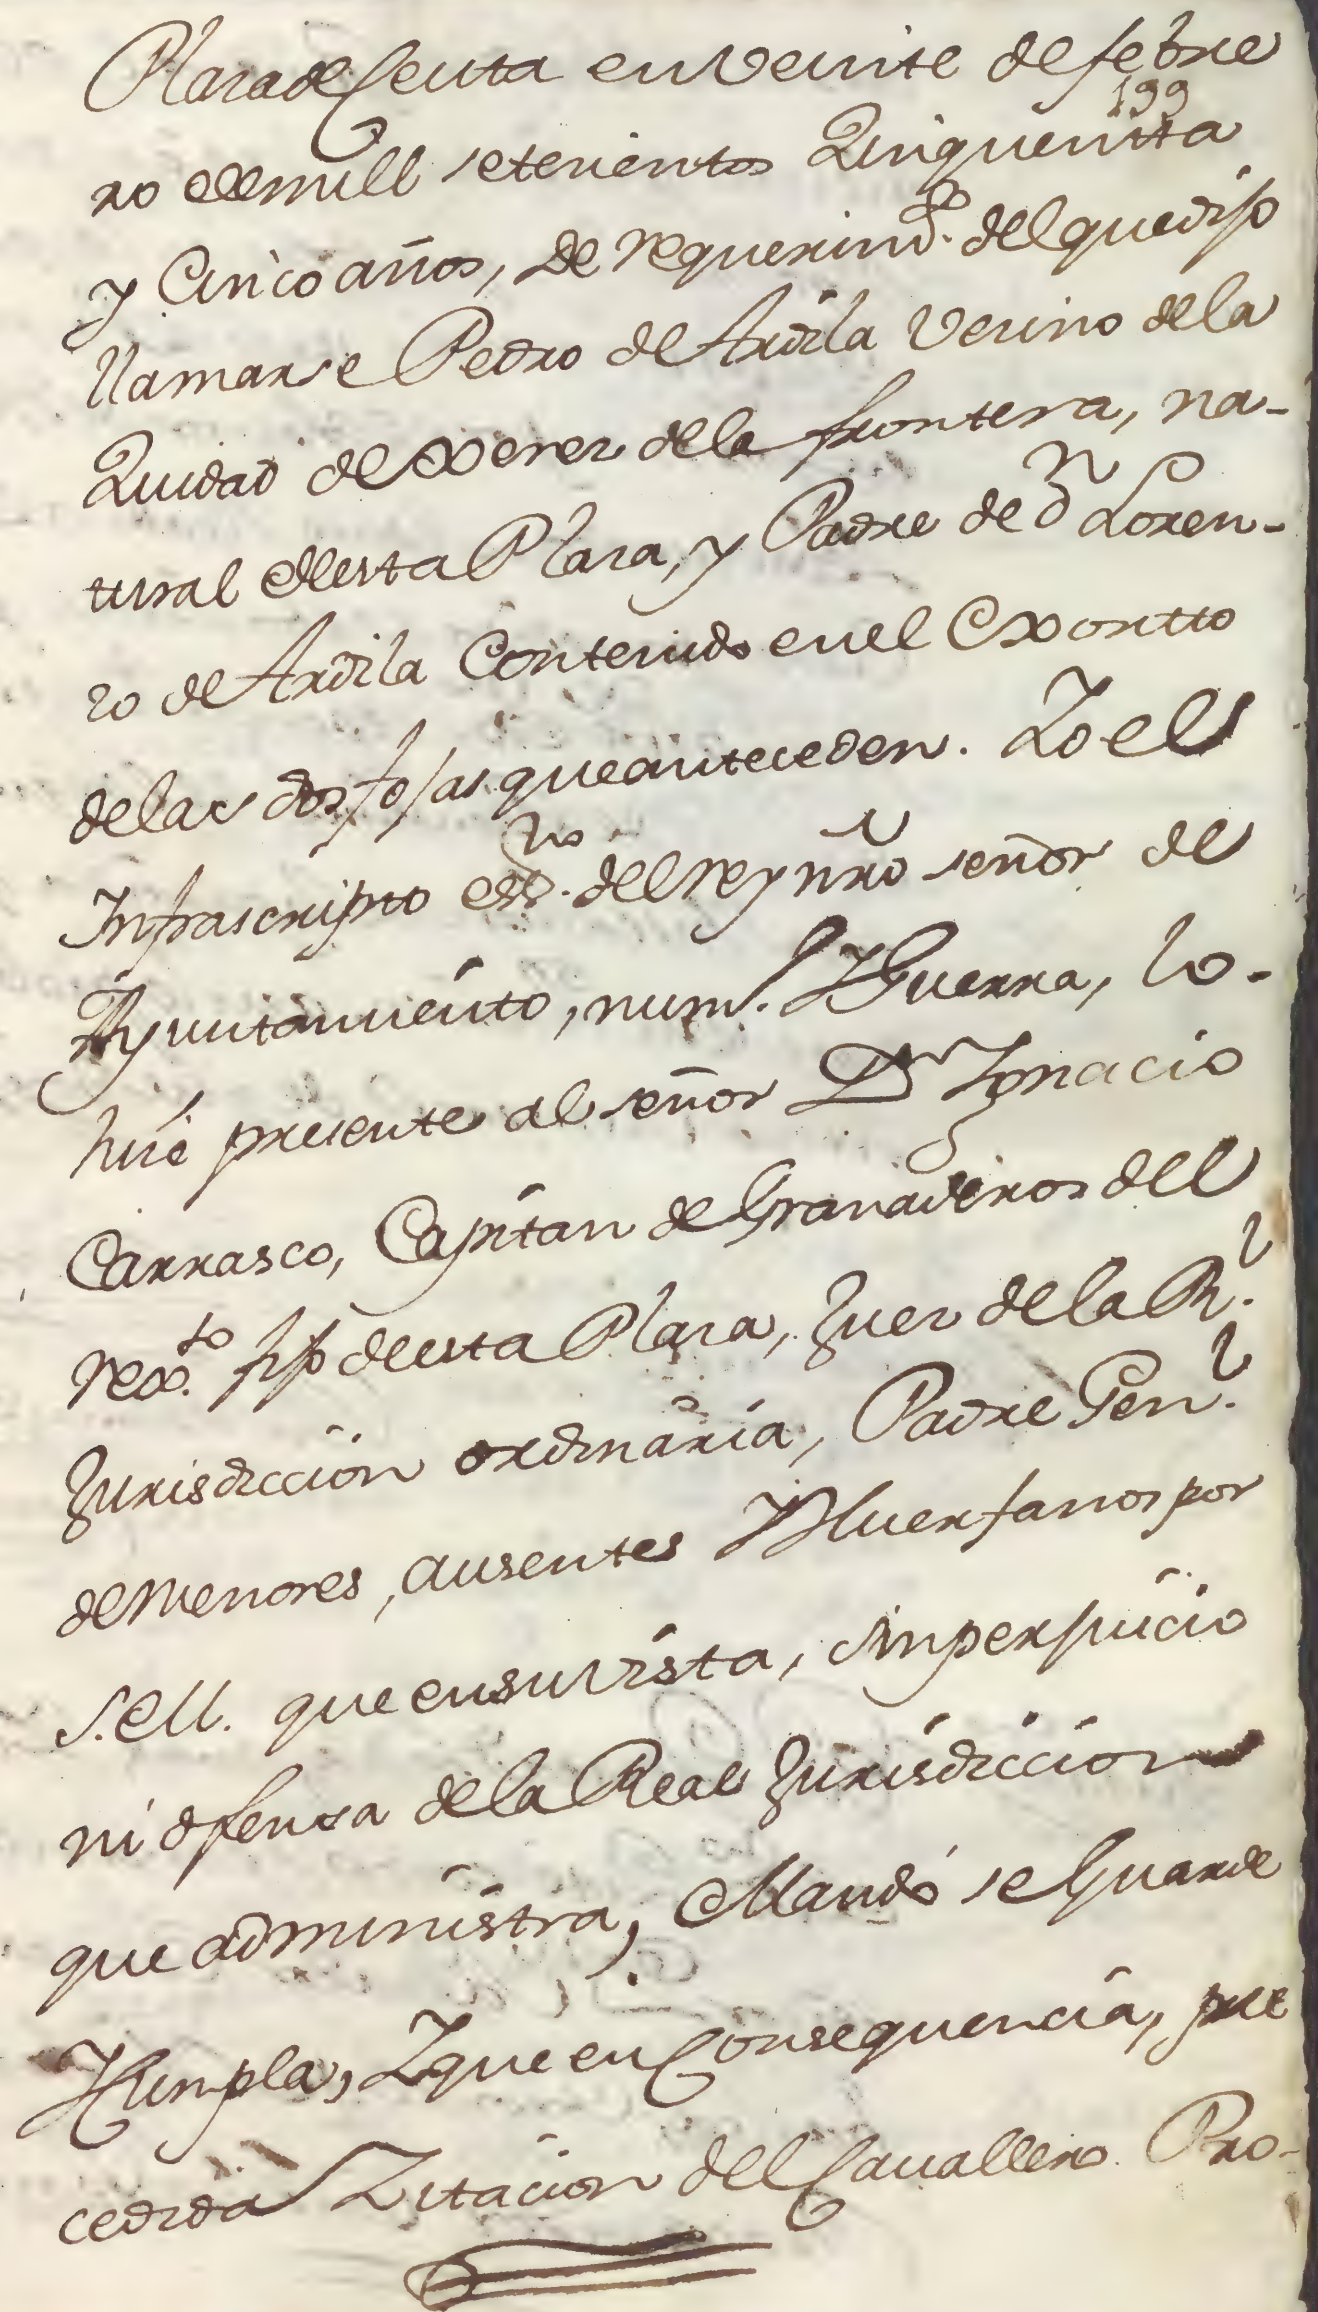 Plaza de Ceuta en veinte de febre
199
ro de mill setecientos Zinquentta
y Cinco años, de requerim.to del que dijo
llamarse Pedro de Ardila Vecino de la
Ziudad de Xerez de la frontera, na-
tural de esta Plaza, y Padre de dn Loren-
zo de Ardila Contenido en el Exortto
de las dos fojas que anteceden. Yo el
Infrascripto essno. del rey nro señor de
Ayuntamiento, num.l y Guerra, lo-
hize presente al señor Dn Ignacio
Carrasco, Capitan de Granaderos del
rex.to fijo de esta Plaza, Juez de la R.l
Jurisdiccion ordinaria, Padre Gen.l
de Menores, ausentes y Huerfanos por
S.M. que en su vista, sin perjuicio
ni ofensa de la Real Jurisdiccion
que administra, Mandó se Guarde
y Cumpla, y que en Consequencia, pre
cedida Zitacion del Cavallero Pro-